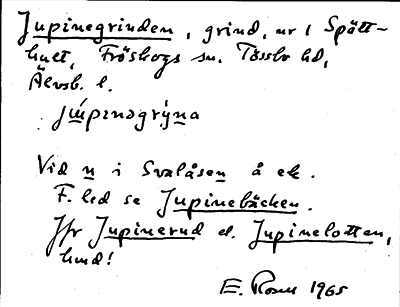 Jupinegrinden, grind, nr i Spått-
huet, Fröskogs sn. Tössbo hd,
Älvsb. l.
Vid n i Svalåsen å ek.
F. led se Jupinebäcken.
Jfr Jupinerud el. Jupinelotten,
hmd!
E. Rosen 1965